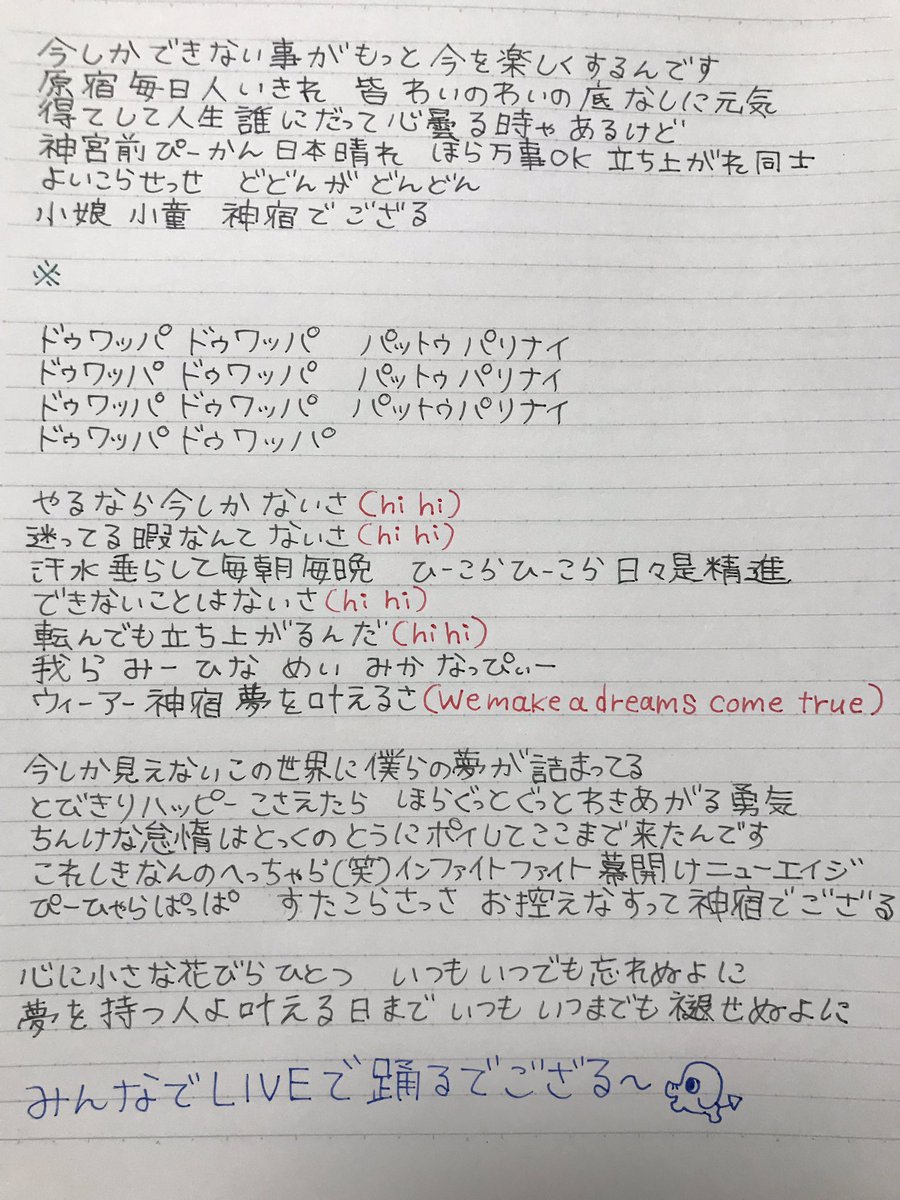 今しかできない事がもっと今を楽しくするんです
原宿毎日人いきれ 皆わいのわいの底なしに元気
得てして人生誰にだって心曇る時ゃあるけど
神宮前ぴーかん日本晴れ ほら万事OK 立ち上がれ同士
よいこらせっせ どどんがどんどん
小娘 小童 神宿でござる
※
ドゥワッパ ドゥワッパ パットゥパリナイ
ドゥワッパ ドゥワッパ パットゥパリナイ
ドゥワッパ ドゥワッパ パットゥパリナイ
ドゥワッパ ドゥワッパ
やるなら今しかないさ(hi hi)
迷ってる暇なんてないさ(hi hi)
汗水垂らして毎朝毎晩 ひーこらひーこら日々是精進
できないことはないさ(hi hi)
転んでも立ち上がるんだ(hi hi)
我ら みー ひな めい みか なっぴぃー
ウィーアー神宿 夢を叶えるさ(We make a dreams come true)
今しか見えないこの世界に僕らの夢が詰まってる
とびきりハッピーこさえたら ほらぐっとぐっとわきあがる勇気
ちんけな怠惰はとっくのとうにポイしてここまで来たんです
これしきなんのへっちゃら(笑)インファイトファイト幕開けニューエイジ
ぴーひゃらぱっぱ すたこらさっさ お控えなすって神宿でござる
心に小さな花びらひとつ いつもいつでも忘れぬよに
夢を持つ人よ叶える日まで いつもいつまでも褪せぬよに
みんなでLIVEで踊るでござる〜